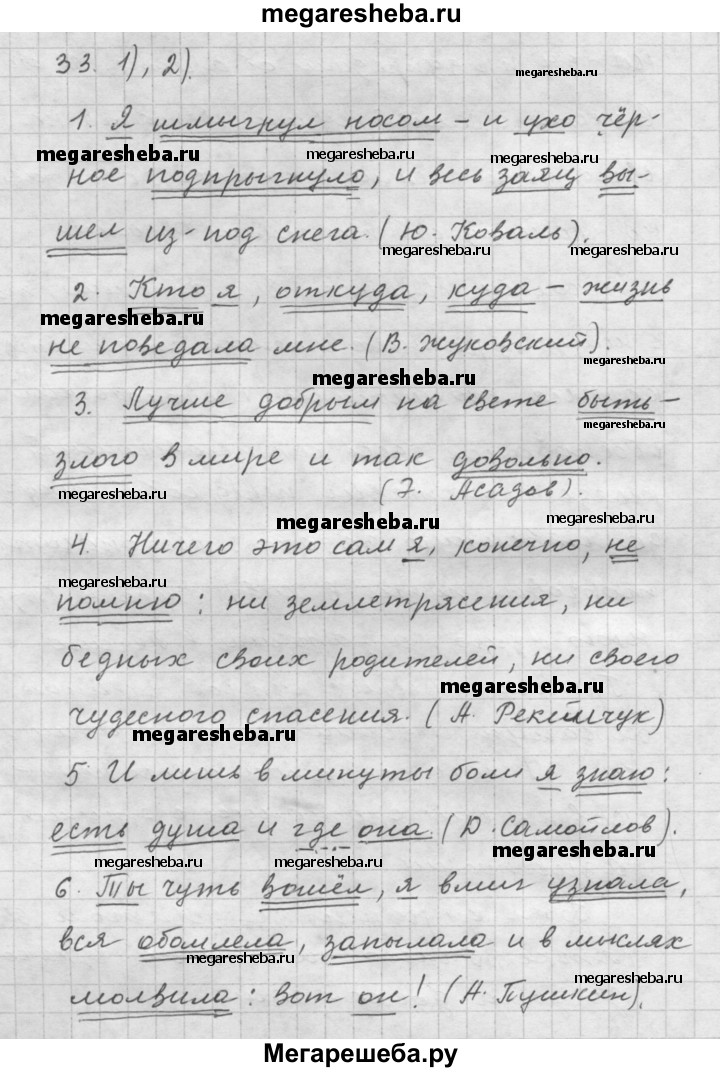 megaresheba.ru
33. 1), 2).
megaresheba.ru
1. Я шмыгнул носом – и ухо чёр-
megaresheba.ru megaresheba.ru megaresheba.ru
ное подпрыгнуло, и весь заяц вы-
шел из-под снега. (Ю. Коваль).
megaresheba.ru megaresheba.ru
2. Кто я, откуда, куда – жизнь
megaresheba.ru megaresheba.ru
не поведала мне. (В. Жуковский).
megaresheba.ru megaresheba.ru
3. Лучше добрым на свете быть –
megaresheba.ru
злого в мире и так довольно.
megaresheba.ru (Э. Асадов).
megaresheba.ru megaresheba.ru
4. Ничего это сам я, конечно, не
megaresheba.ru
помню: ни землетрясения, ни
бедных своих родителей, ни своего
megaresheba.ru
чудесного спасения. (А. Рекемчук)
megaresheba.ru
5 И лишь в минуты боли я знаю:
есть душа и где она. (Д. Самойлов).
megaresheba.ru megaresheba.ru megaresheba.ru
6. Ты чуть вошёл, я вмиг узнала,
вся обомлела, запылала и в мыслях
megaresheba.ru megaresheba.ru
молвила: вот он! (А. Пушкин).
Мегарешеба.ру